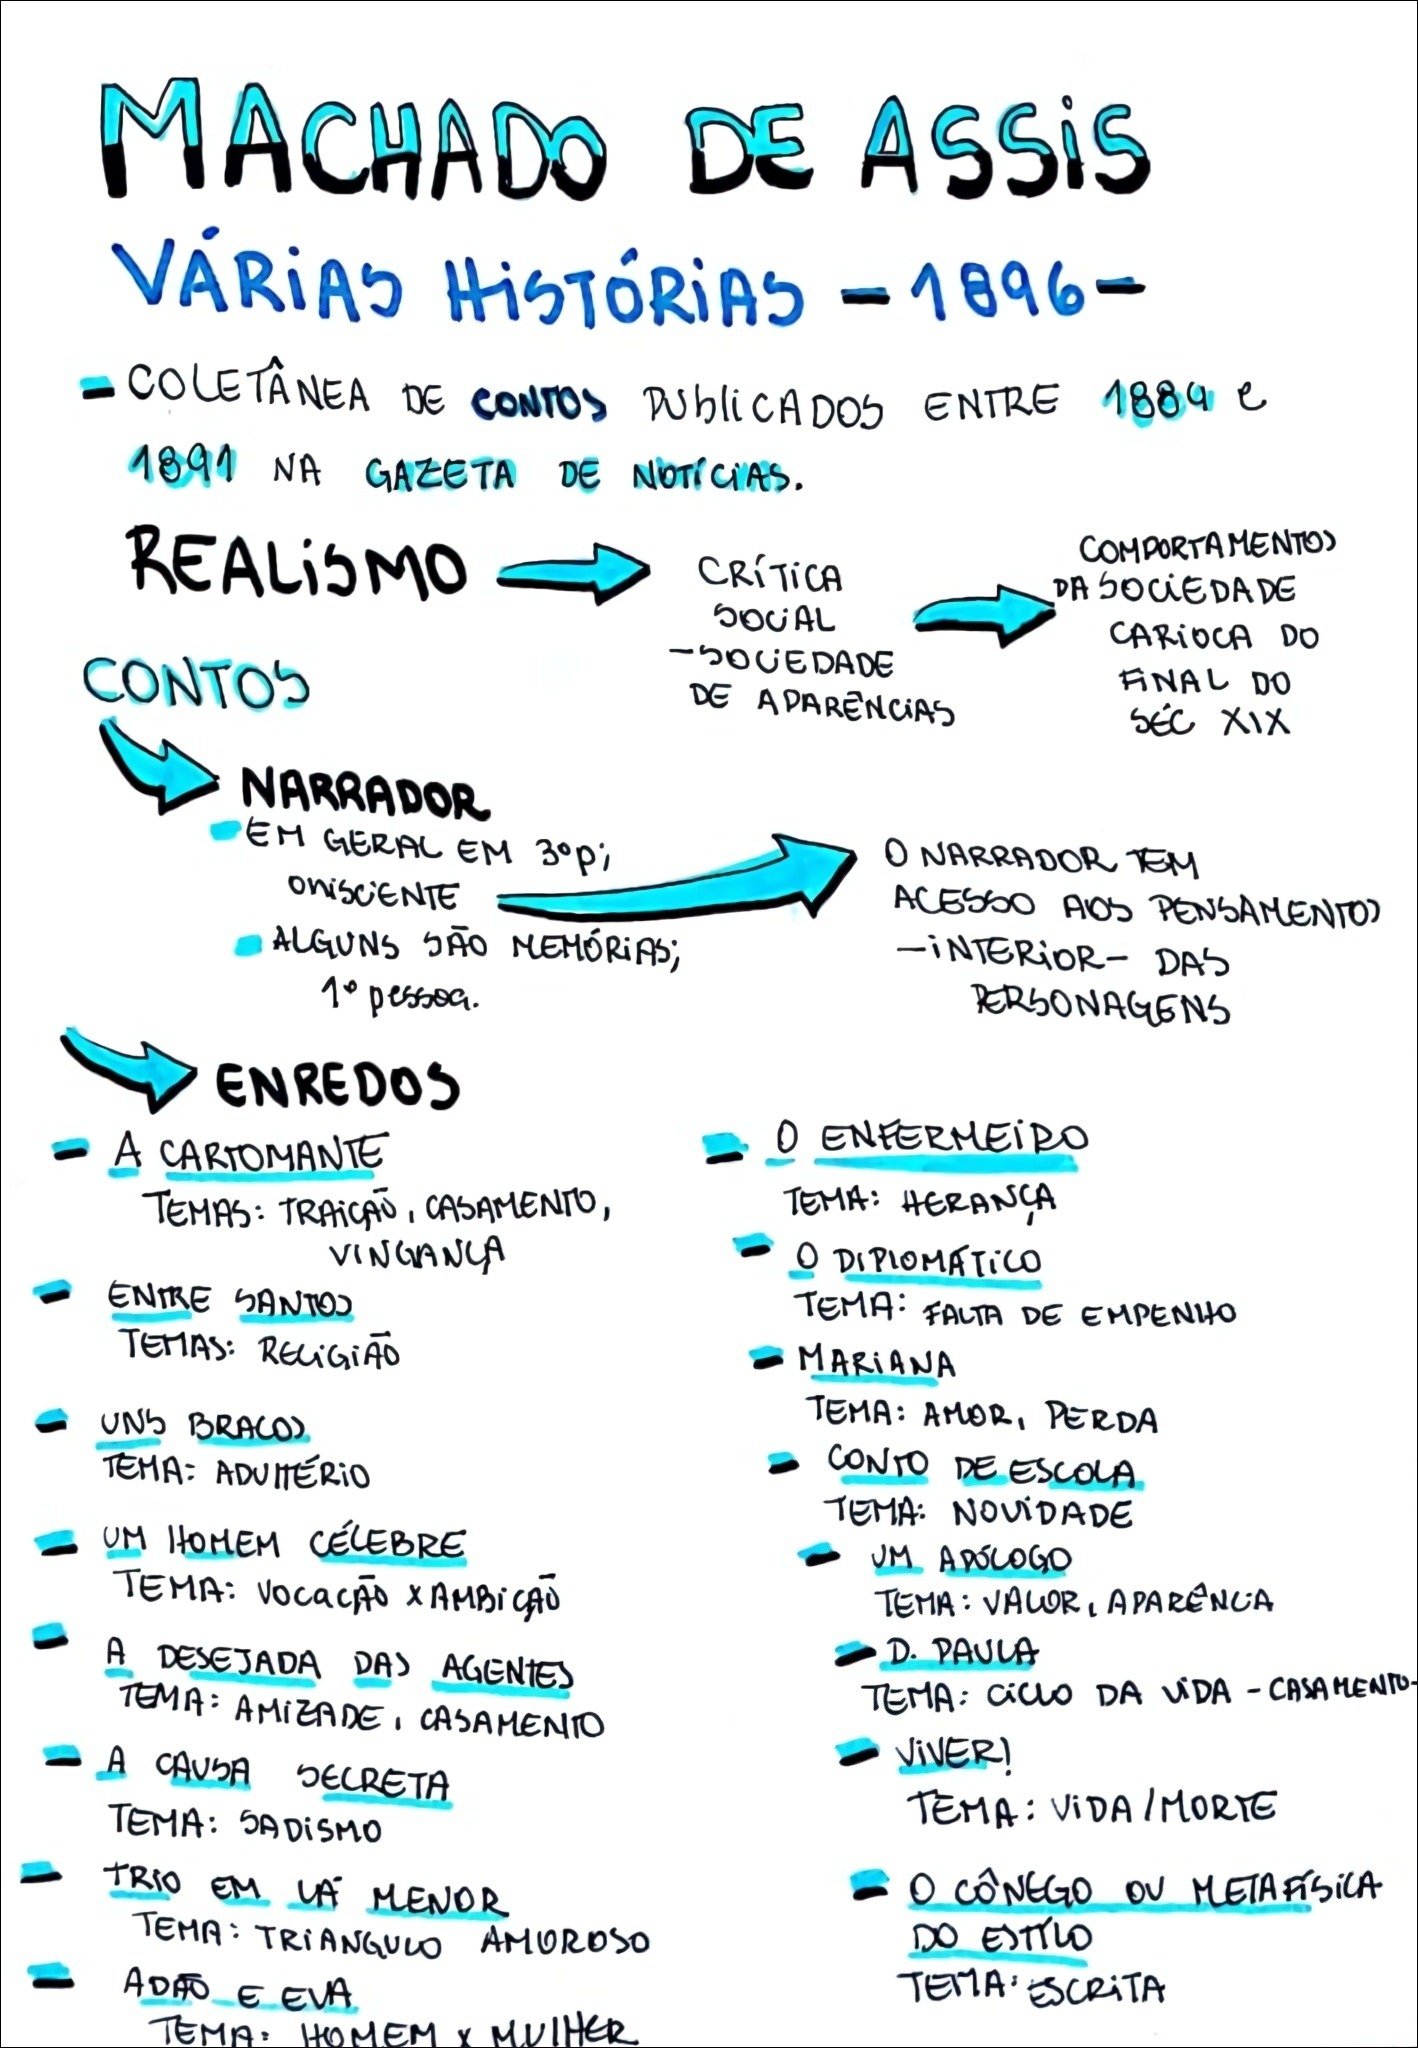 MACHADO DE ASSIS
VÁRIAS HISTÓRIAS - 1896 -
- COLETÂNEA DE CONTOS PUBLICADOS ENTRE 1884 e
1891 NA GAZETA DE NOTÍCIAS.
REALISMO
CRÍTICA
SOCIAL
- SOCIEDADE
DE APARÊNCIAS
COMPORTAMENTOS
DA SOCIEDADE
CARIOCA DO
FINAL DO
SÉC XIX
CONTOS
NARRADOR
- EM GERAL EM 3º p;
oniscIENTE
- ALGUNS SÃO MEMÓRIAS;
1º pessoa.
O NARRADOR TEM
ACESSO AOS PENSAMENTOS
- INTERIOR - DAS
PERSONAGENS
ENREDOS
- A CARTOMANTE
TEMAS: TRAIÇÃO, CASAMENTO,
VINGANÇA
- ENTRE SANTOS
TEMAS: RELIGIÃO
- UNS BRACOS
TEMA: ADULTÉRIO
- UM HOMEM CÉLEBRE
TEMA: VOCAÇÃO X AMBIÇÃO
- A DESEJADA DAS AGENTES
TEMA: AMIZADE, CASAMENTO
- A CAUSA SECRETA
TEMA: SADISMO
- TRIO EM LÁ MENOR
TEMA: TRIANGULO AMOROSO
- ADÃO E EVA
TEMA: HOMEM X MULHER
- O ENFERMEIRO
TEMA: HERANÇA
- O DIPLOMÁTICO
TEMA: FALTA DE EMPENHO
- MARIANA
TEMA: AMOR, PERDA
- CONTO DE ESCOLA
TEMA: NOVIDADE
- UM APÓLOGO
TEMA: VALOR, APARÊNCIA
- D. PAULA
TEMA: CICLO DA VIDA - CASAMENTO-
- VIVER!
TEMA: VIDA/MORTE
- O CÔNEGO OU METAFÍSICA
DO ESTILO
TEMA: ESCRITA